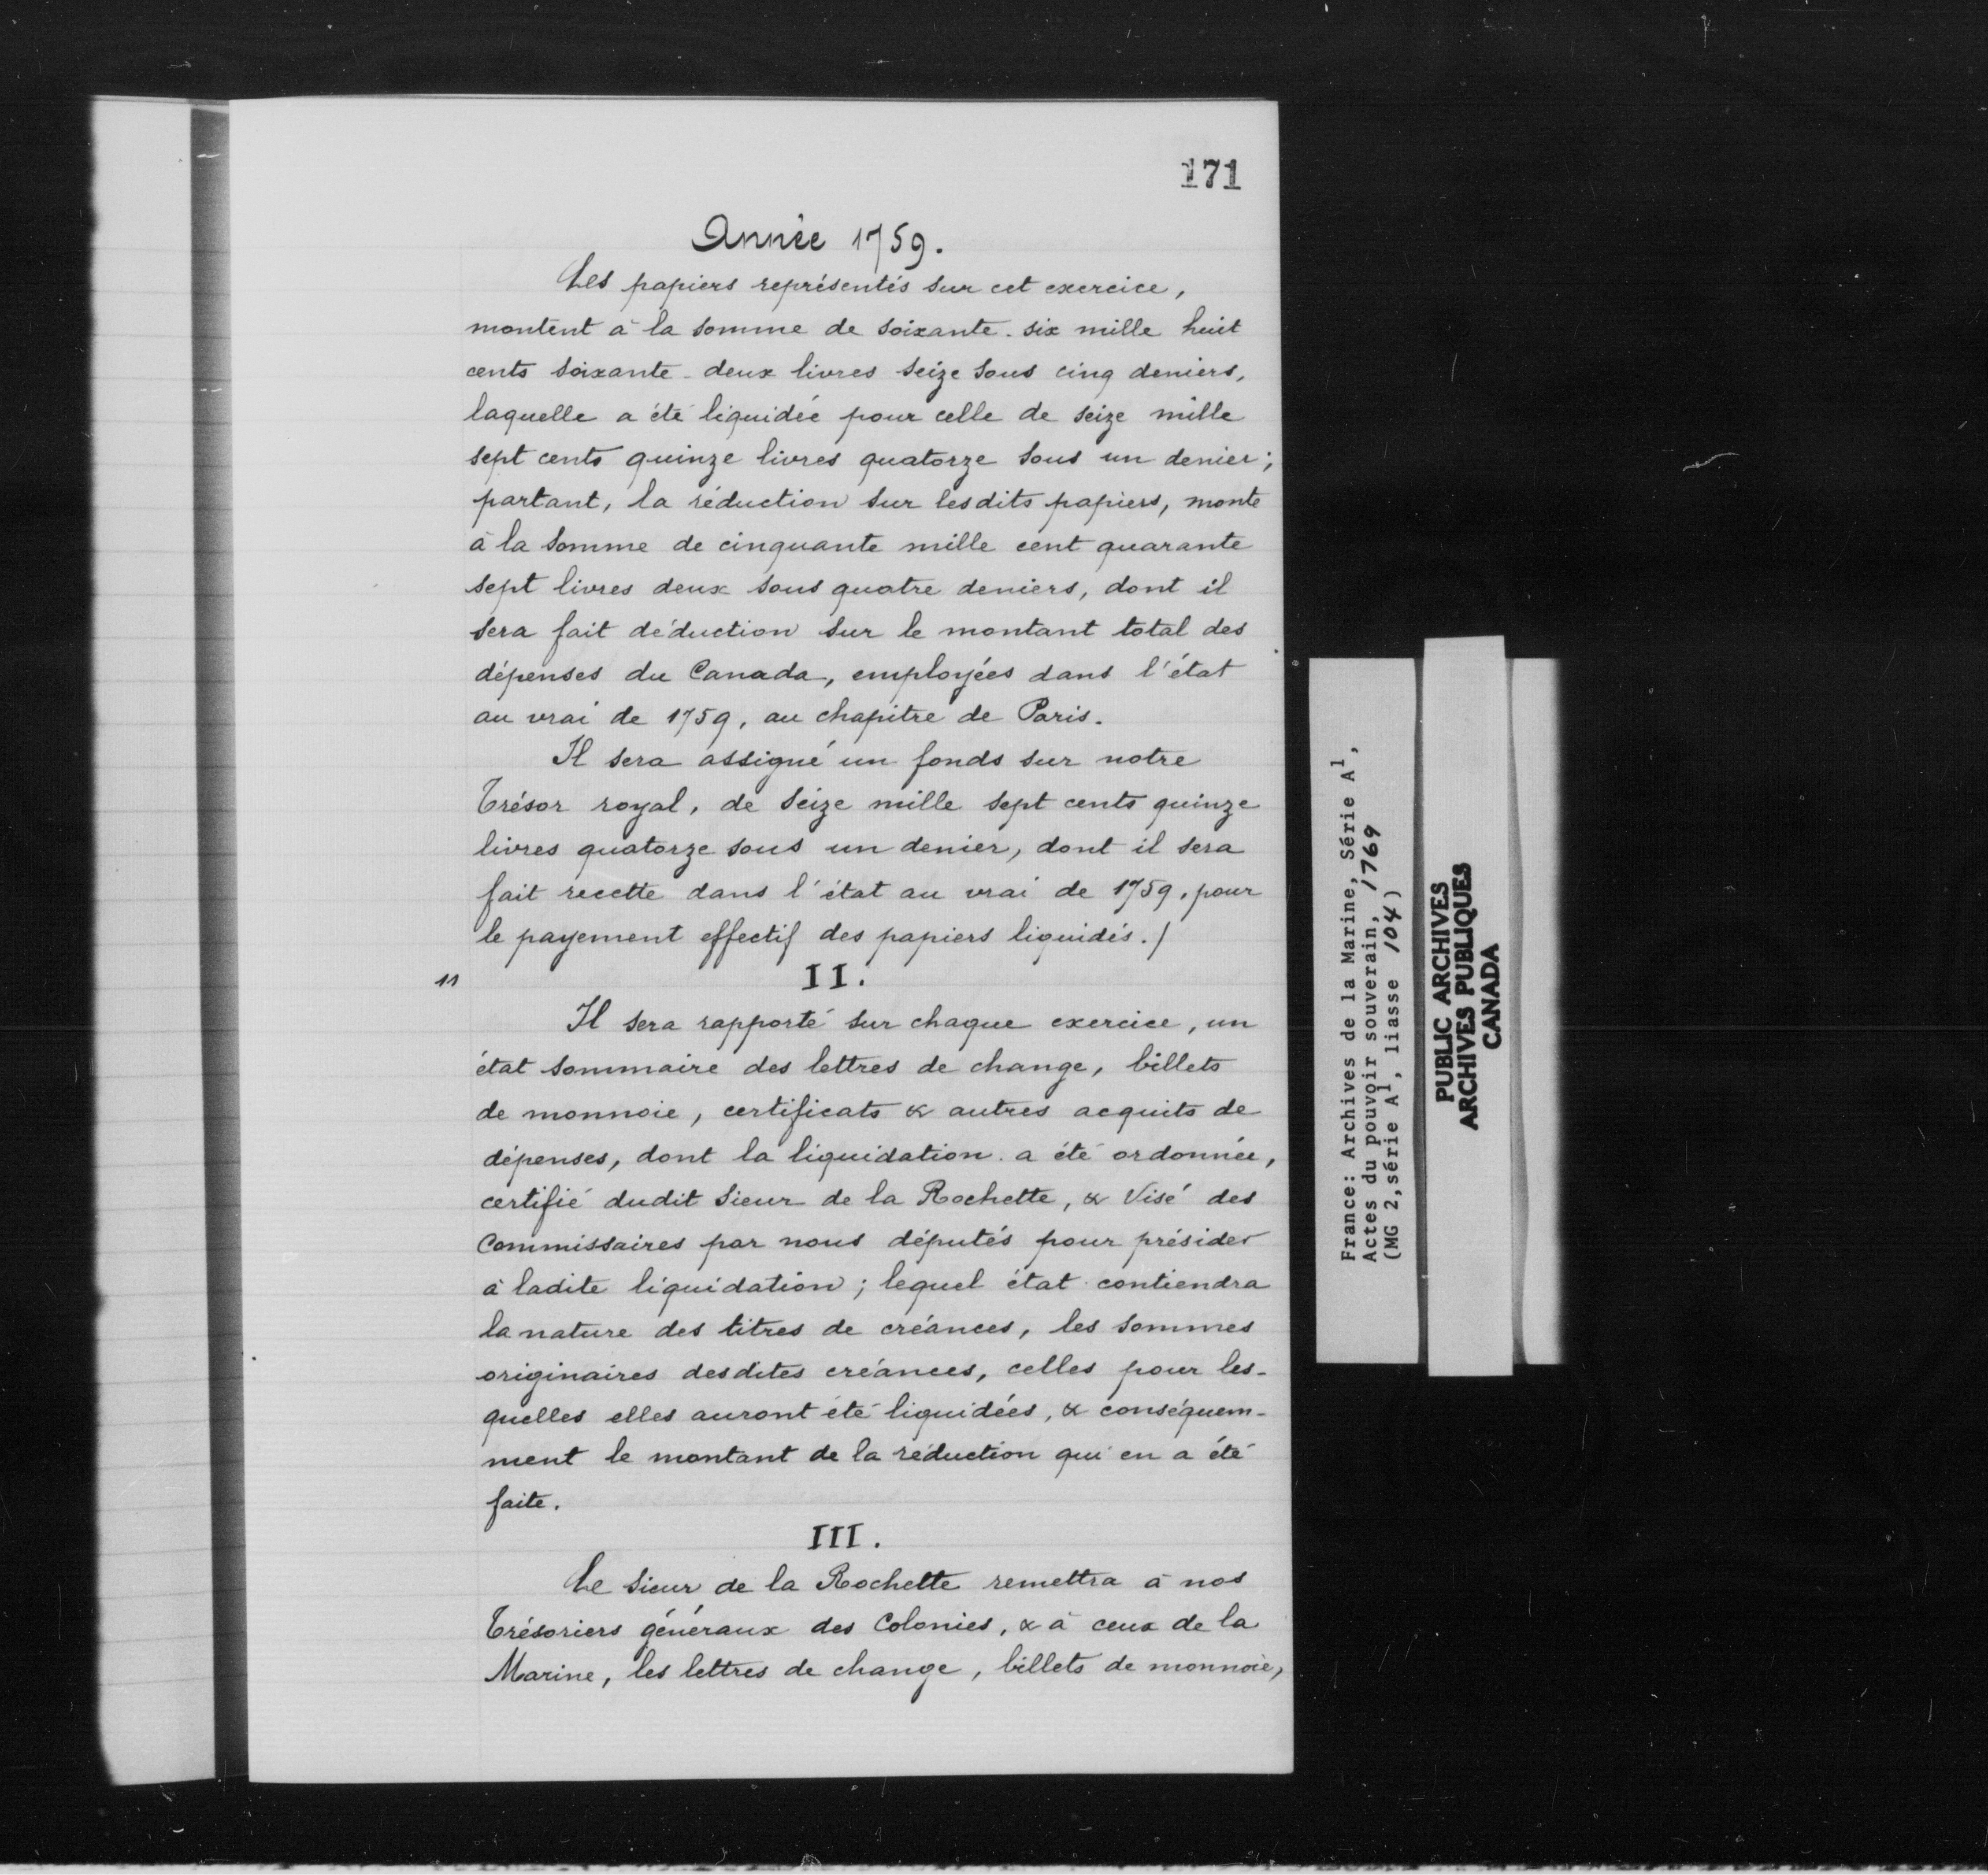 171
Année 1759.
Les papiers représentés sur cet exercice,
montent à la somme de soixante-six mille huit
cents soixante-deux livres seize sous cinq deniers,
laquelle a été liquidée pour celle de seize mille
sept cents quinze livres quatorze sous un denier;
partant, la réduction sur lesdits papiers, monte
à la somme de cinquante mille cent quarante
sept livres deux sous quatre deniers, dont il
sera fait déduction sur le montant total des
dépenses du Canada, employées dans l'état
au vrai de 1759, au chapitre de Paris.
Il sera assigné un fonds sur notre
Trésor royal, de seize mille sept cents quinze
livres quatorze sous un denier, dont il sera
fait recette dans l'état au vrai de 1759, pour
le payement effectif des papiers liquidés./
11
II.
Il sera rapporté sur chaque exercice, un
état sommaire des lettres de change, billets
de monnoie, certificats & autres acquits de
dépenses, dont la liquidation a été ordonnée,
certifié dudit Sieur de la Rochette, & Visé des
Commissaires par nous députés pour présider
à ladite liquidation; lequel état contiendra
la nature des titres de créances, les sommes
originaires desdites créances, celles pour les-
quelles elles auront été liquidées, & conséquem-
ment le montant de la réduction qui en a été
faite.
III.
Le Sieur de la Rochette remettra à nos
Trésoriers généraux des Colonies, & à ceux de la
Marine, les lettres de change, billets de monnoie,
France: Archives de la Marine, Série A1,
Actes du pouvoir souverain, 1769
(MG 2, série A1, liasse 104)
PUBLIC ARCHIVES
ARCHIVES PUBLIQUES
CANADA